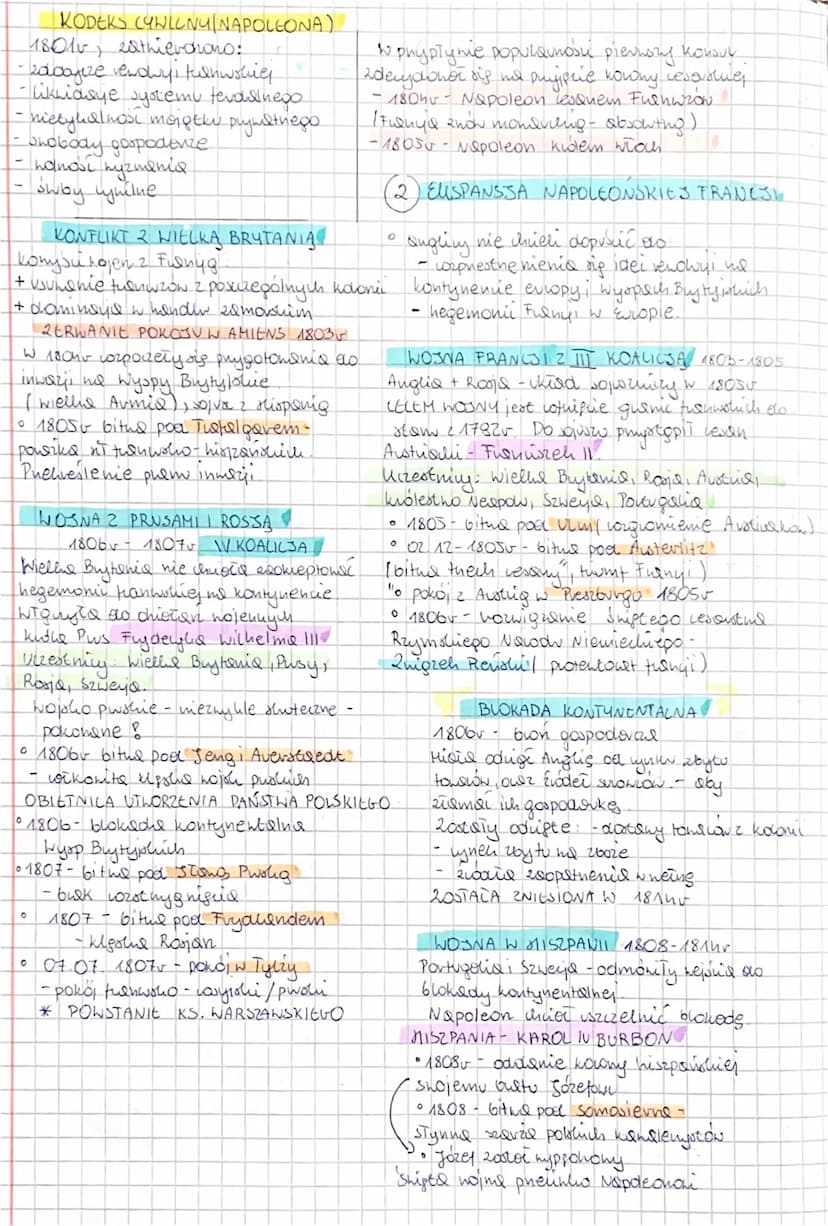 KODEKS CYWILNY (NAPOLEONA)
1801r, zatwierdzono:
- zdobycze rewolucji francuskiej
- likwidację systemu feudalnego
- nietykalność majątku prywatnego
- swobody gospodarcze
- wolność wyznania
- śluby cywilne
W przypływie popularności pierwszy konsul
zdecydował się na przyjęcie korony cesarskiej
- 1804r - Napoleon cesarzem Francuzów
(Francja znów monarchią - absolutną)
- 1805r - Napoleon królem Włoch
KONFLIKT Z WIELKĄ BRYTANIĄ
Korzyści wojen z Francją
+ usuwanie francuzów z poszczególnych kolonii
+ dominacja w handlu zamorskim
ZERWANIE POKOJU W AMIENS 1803r
W 1804r rozpoczęły się przygotowania do
inwazji na Wyspy Brytyjskie
(Wielka Armia), sojusz z Hiszpanią
• 1805r bitwa pod Trafalgarem -
porażka fl francusko-hiszpańskim.
Przekreślenie planu inwazji
WOJNA Z PRUSAMI I ROSJĄ
1806r - 1807r IV KOALICJA
Wielka Brytania nie chciała zaakceptować
hegemonii francuskiej na kontynencie
wtągnęła do działań wojennych
króla Prus Fryderyka Wilhelma III
Uczestnicy: Wielka Brytania, Prusy,
Rosja, Szwecja.
Wojsko pruskie - niezwykle skuteczne -
pokonane!
• 1806r bitwa pod Jeną i Auerstaedt
- całkowita klęska wojsk pruskich
OBIETNICA UTWORZENIA PAŃSTWA POLSKIEGO
• 1806 - blokada kontynentalna
Wysp Brytyjskich
• 1807 - bitwa pod Iławą Pruską
- brak rozstrzygnięcia
• 1807 - bitwa pod Frydlandem
- klęska Rosjan
• 07.07.1807r - pokój w Tylży
- pokój francusko-rosyjski/pruski
* POWSTANIE KS. WARSZAWSKIEGO
2 EKSPANSJA NAPOLEOŃSKIEJ FRANCJI
• anglicy nie chcieli dopuścić do
- rozprzestrzenienia się idei rewolucji na
kontynencie europy i wyspach Brytyjskich
- hegemonii Francji w Europie.
WOJNA FRANCJI Z III KOALICJĄ 1803-1805
Anglia + Rosja - układ sojuszniczy w 1805r
CELEM WOJNY jest cofnięcie granic francuskich do
stanu z 1792r. Do sojuszu przystąpił cesarz
Austriacki - Franciszek II
Uczestnicy: Wielka Brytania, Rosja, Austria,
królestwo Neapolu, Szwecja, Portugalia
• 1805 - bitwa pod Ulm (rozgromienie Austriaków)
• 02.12-1805r - bitwa pod Austerlitz
(bitwa trzech cesarzy", triumf Francji)
"• pokój z Austrią w Preszburgu 1805r
• 1806r - rozwiązanie świętego cesarstwa
Rzymskiego Narodu Niemieckiego -
Związek Reński (protektorat francji)
BLOKADA KONTYNENTALNA
1806r - broń gospodarcza
Miała odciąć Anglię od rynku zbytu
towarów, oraz źródeł surowców - aby
złamać ich gospodarkę.
Zostały odcięte: - dostawy towarów z kolonii
- rynek zbytu na zboże
- źródła zaopatrzenia w wełnę
ZOSTAŁA ZNIESIONA W 1814r
WOJNA W HISZPANII 1808-1814r
Portugalia i Szwecja - odmówiły wejścia do
blokady kontynentalnej.
Napoleon chciał uszczelnić blokadę.
HISZPANIA - KAROL IV BURBON
• 1808r - oddanie korony hiszpańskiej
swojemu bratu Józefowi
• 1808 - bitwa pod Somosierrą -
słynna szarża polskich kawalerzystów
• Józef został wypędzony
święta wojna przeciwko Napoleonowi